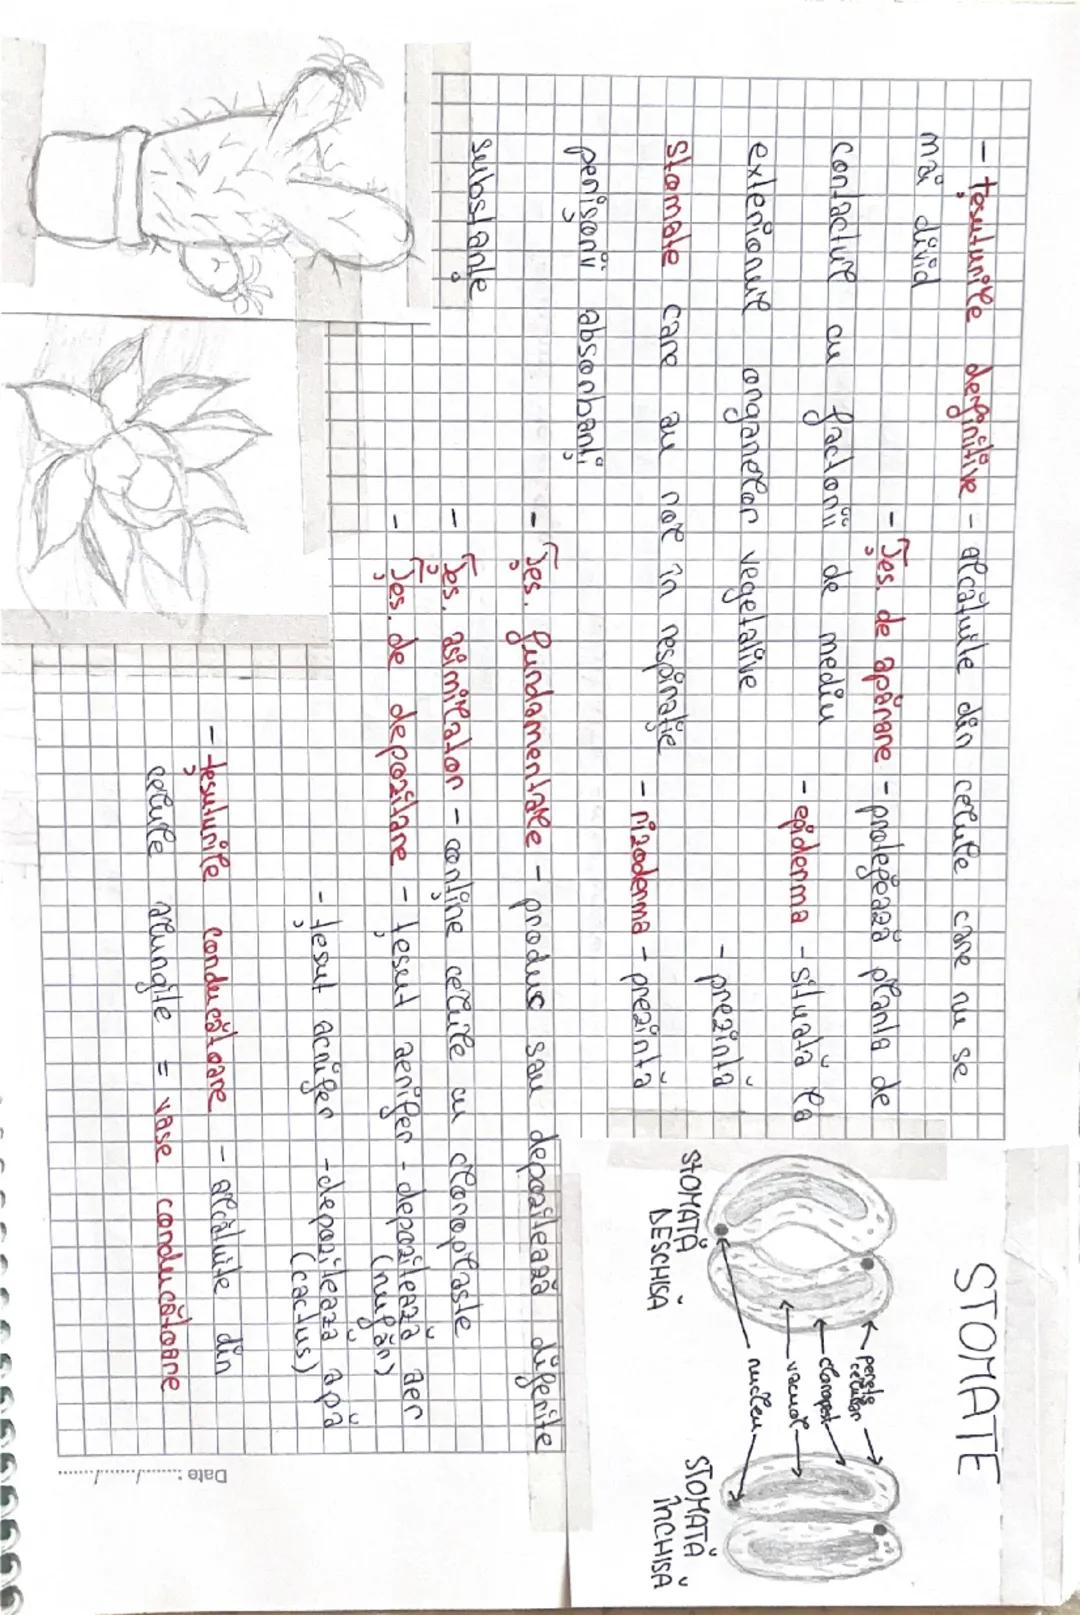 - țesuturile definitive - alcătuite din celule care nu se
mai divid
- Țes. de apărare - protejează planta de
contactul cu factorii de mediu
- epiderma - situată la
exteriorul organelor vegetative
- prezintă
stomate care au rol în respirație
- rizoderma - prezintă
perișorii absorbanți
- Țes. fundamentale - produc sau depozitează diferite
substanțe
- Țes. asimilator - conține celule cu cloroplaste
- Țes. de depozitare - țesut aerifer - depozitează aer
(nufăr)
- țesut acvifer - depozitează apă
(cactus)
- țesuturile conducătoare - alcătuite din
celule alungite = vase conducătoare
STOMATE
perete
celular
cloroplast
vacuole
nucleu
STOMATĂ
DESCHISĂ
STOMATĂ
ÎNCHISĂ
Date :......./......./.......